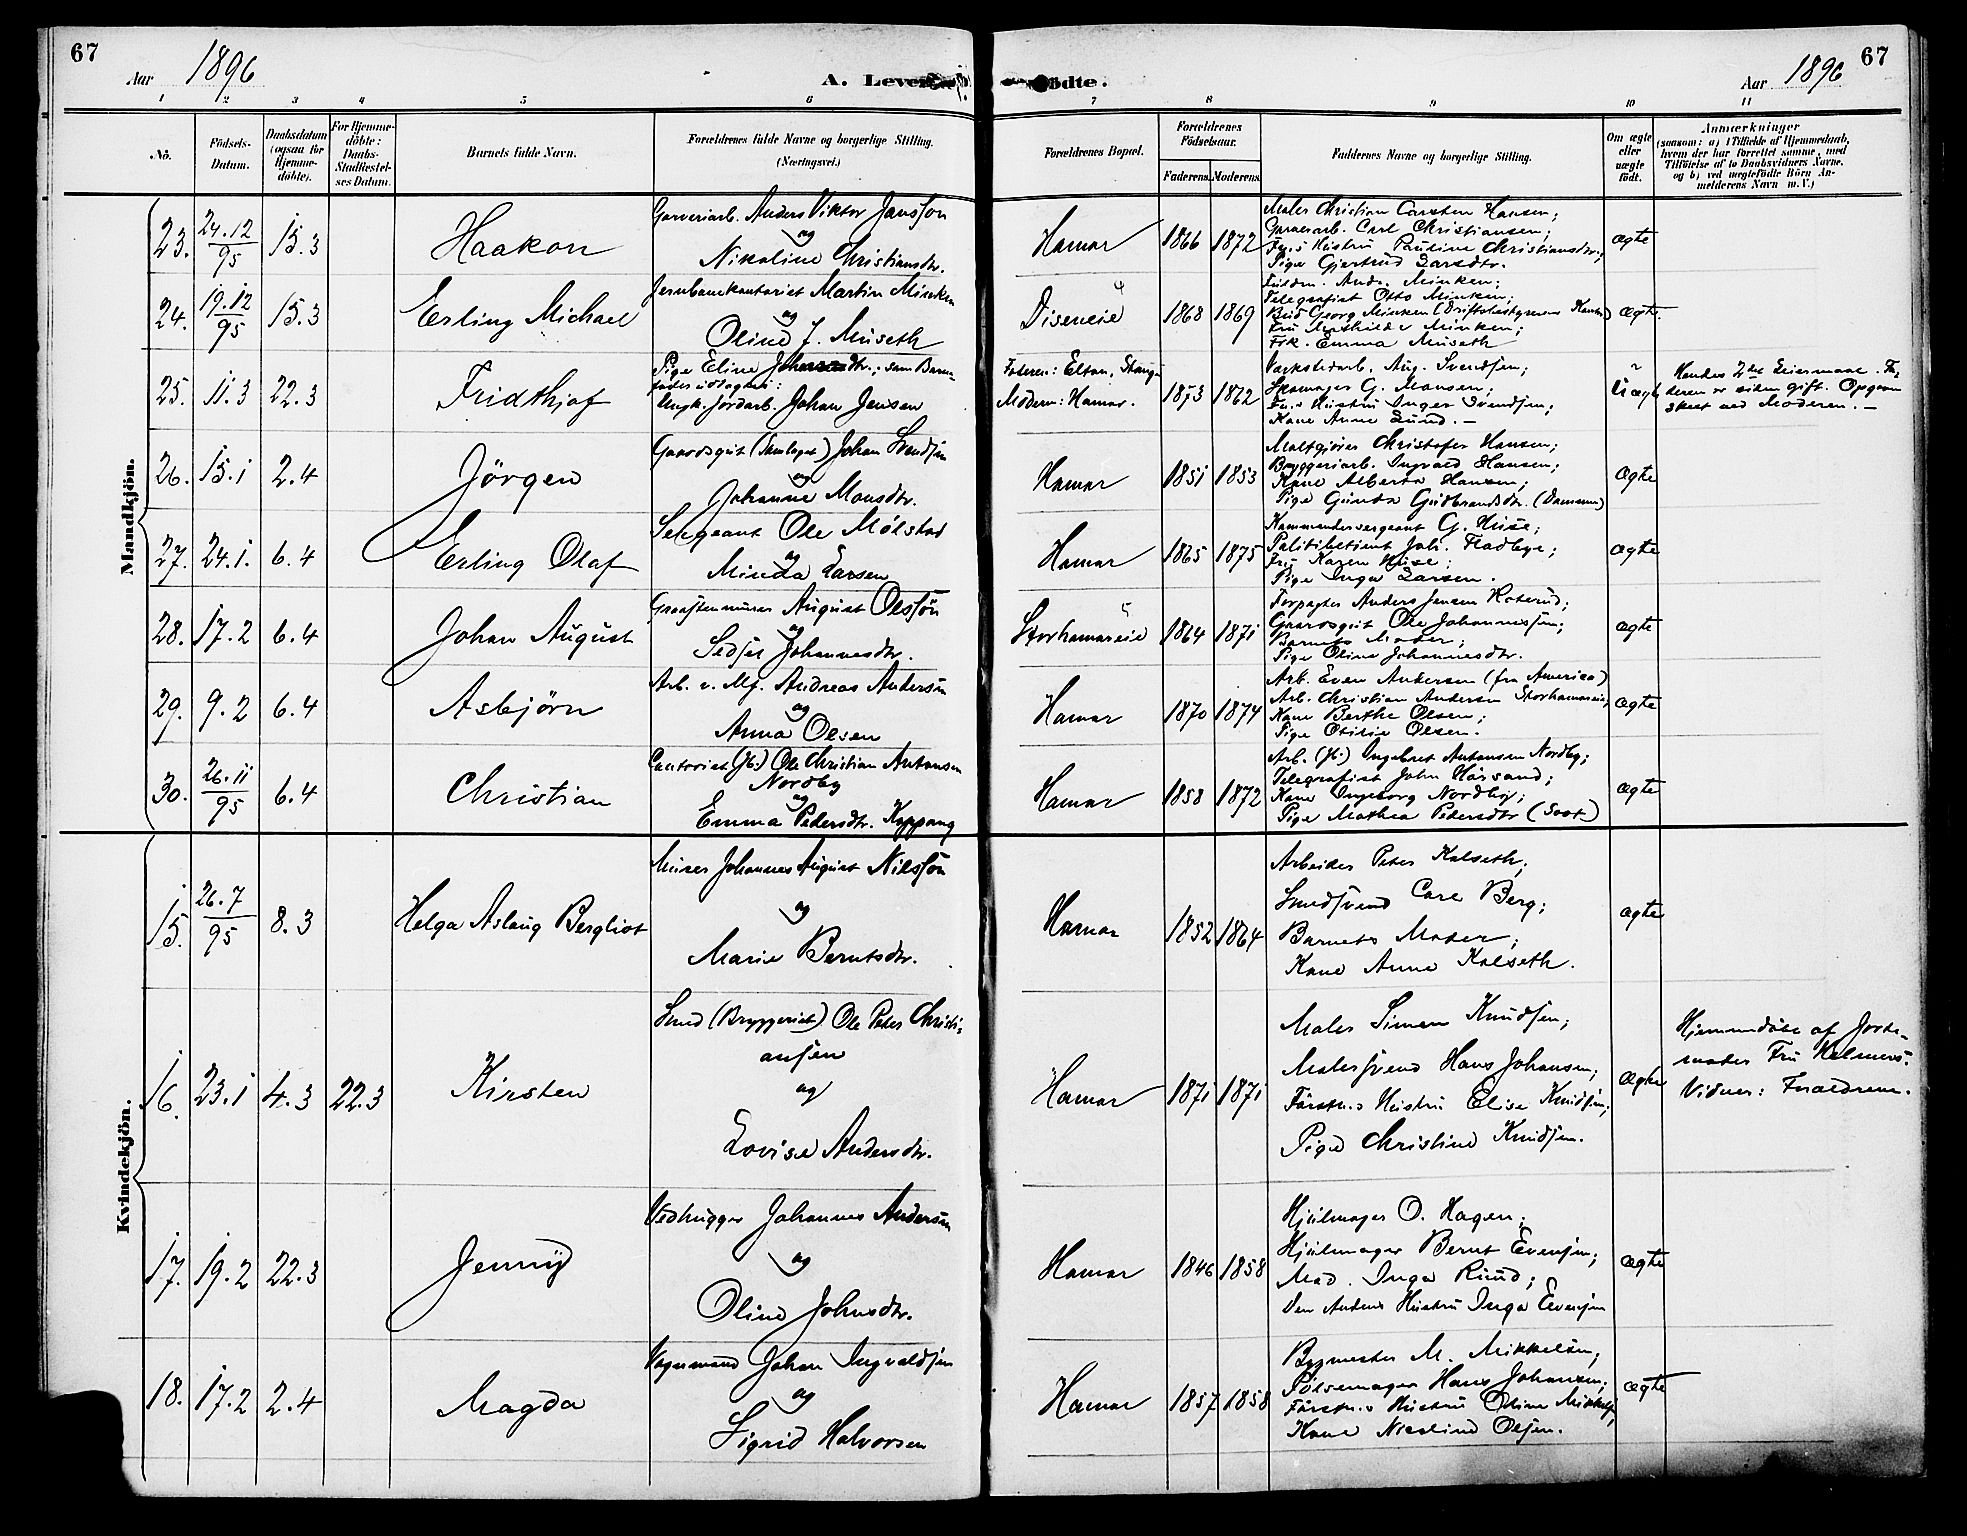 67
Aar 1896
A. Leven
ødte.
Aar 1896
67
1 2 3 4 5 6 7 8 9 10 11
No.
Fødsels-
Datum.
Daabsdatum
(ogsaa for
Hjemme-
døbte).
For Hjemme-
døbte:
Daabs-
Stadfæstel-
ses Datum.
Barnets fulde Navn.
Forældrenes fulde Navne og borgerlige Stilling.
(Næringsvei.)
Forældrenes Bopæl.
Forældrenes
Fødselsaar.
Faderens. Moderens.
Faddernes Navne og borgerlige Stilling.
Om ægte
eller
uægte
født.
Anmærkninger
(saasom: a) i Tilfælde af Hjemmedaab,
hvem der har forrettet samme, med
Tilføielse af to Daabsvidners Navne,
og b) ved uægtefødte Børn An-
melderens Navn m. V.)
Mandkjøn.
23. 24.12/95 15.3 Haakon
Garveriarb. Anders Viktor Jansson
og
Nikoline Christiansdtr.
Hamar 1866 1872
Maler Christian Carsten Hansen;
Garveriarb. Carl Christiansen;
Fn.s Hustru Pauline Christiansdtr.;
Pige Gjertrud Larsdtr.
ægte
24. 19.12/95 15.3 Erling Michael
Jernbanekontorist Martin Minken
og
Oline J. Museth
Diseneie 4 1868 1869
Fuldm. Andr. Minken;
Telegrafist Otto Minken;
Bud Georg Minken (Driftsbestyrerens Kontor)
Fru Mathilde Minken;
Frk. Emma Museth
ægte.
25. 11.3 22.3 Fridthjof
Pige Eline dtr.; som Barne-
fader udlagt:
Ungk. Jordarb. Johan Jensen
Faderen: Elton, Stange
Moderen: Hamar.
1873 1862
Værkstedarb. Aug. Svendsen;
Skomager G. Monsen;
Fn.s Hustru Inger Svendsen;
Kone Anne Lund. -
Uægte
Hendes 2det Leiermaal. Fa-
deren er siden gift. Opgaven
skeet ved Moderen. -
26. 15.1 2.4 Jörgen
Gaardsgut (Samlaget) Johan Svendsen
og
Johanne Monsdtr.
Hamar 1851 1853
Maltgjører Christofer Hansen;
Bryggeriarb. Ingvald Hansen;
Kone Alberta Hansen;
Pige Gunda Gudbrandsdtr.
ægte
27. 24.1. 6.4 Erling Olaf
Sergeant Ole Mølstad
og
Minda Larsen
Hamar 1865 1875
Kommandersergeant G. Huse;
Politibetjent Joh. Fladbye;
Fru Karen Huse;
Pige Inga Larsen.
ægte
28. 17.2 6.4 Johan August
August Olsson
og
Sedsel Johannesdtr.
Storhamareie 5 1864 1871
Forpagter Anders Jensen
Gaardsgut Ole Johannessen;
Barnets Moder;
Pige Oline Johannesdtr.
ægte
29. 9.2 6.4 Asbjörn
Arb. v. Mj. Andreas Andersen
og
Anna Olsen
Hamar 1870 1874
Arb. Even Andersen (fra America)
Arb. Christian Andersen Storhamareie,
Kone Berthe Olsen;
Pige Otilie Olsen.
ægte
30. 26.11/95 6.4 Christian
Contorist (Jb.) Ole Christian Antonsen
Nordby
og
Emma Pedersdtr. Koppang
Hamar 1858 1872
Arb. (Jb.) Ingebret Antonsen Nordby;
Telegrafist John Hørsand;
Kone Ingeborg Nordby;
Pige Mathea Pedersdtr
ægte
Kvindekjøn.
15. 26.7/95 8.3 Helga Aslaug Bergliot
Murer Johannes August Nilsson
og
Marie Berntsdtr.
Hamar 1852 1864
Arbeider Peter Kalseth;
Smedsvend Carl Berg;
Barnets Moder;
Kone Anna Kalseth.
ægte
16. 23.1 4.3 22.3 Kirsten
Smed (Bryggeriet) Ole Peter Christi-
ansen
og
Lovise Andersdtr.
Hamar 1871 1871
Maler Simen Knudsen;
Malersvend Hans Johansen;
Førstn.s Hustru Elise Knudsen;
Pige Christine Knudsen.
ægte
Hjemmedøbt af Jorde-
moder Fru
Vidner: Forældrene.
17. 19.2 22.3 Jenny
Vedhugger Johannes Andersen
og
Oline Johnsdtr.
Hamar 1846 1858
Hjulmager O. Hagen;
Hjulmager Bernt Evensen;
Mad. Inga Ruud;
Den Andens Hustru Inga Evensen
ægte
18. 17.2 2.4 Magda
Vognmand Johan Ingvaldsen
og
Sigrid Halvorsen
Hamar 1857 1858
Bygmester M. Mikkelsen;
Pølsemager Hans Johansen;
Førstn.s Hustru Oline Mikkels.
Kone Nicoline Olsen.
ægte